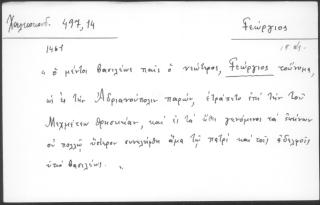 Χαλκοκονδ. 497,14
Γεώργιος
1461
" ὁ μέντοι βασιλέως παῖς ὁ νεώτερος, Γεώργιος τοὔνομα,
ὡς ἐς τὴν Ἀδριανούπολιν παρῆν, ἐτράπετο ἐπὶ τὴν τοῦ
Μεχμέτεω θρησκείαν, καὶ ἐς τὰ ἤθη γενόμενος τὰ ἐκείνων
οὐ πολλῷ ὕστερον συνελήφθη ἅμα τῷ πατρὶ καὶ τοῖς ἀδελφοῖς
ὑπὸ βασιλέως. "